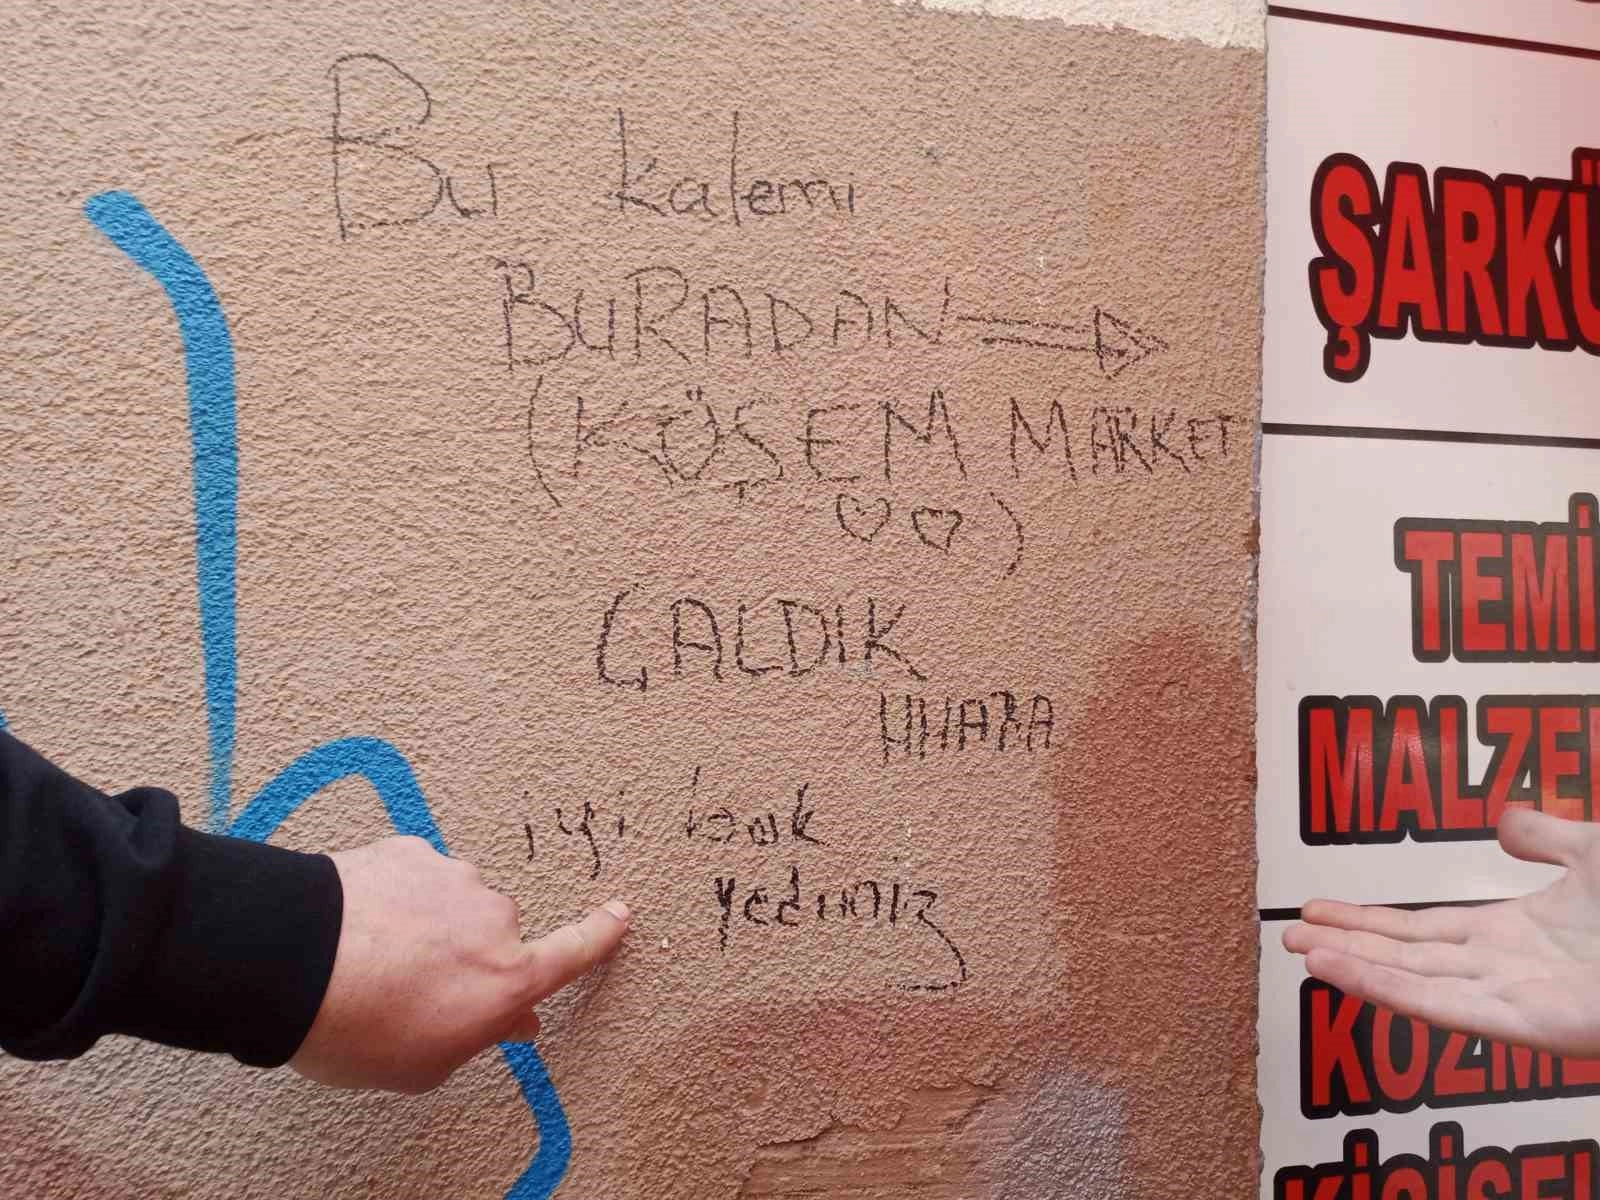 Bu kalemi
BURADAN
(KÖŞEM MARKET
♡♡)
ÇALDIK
HHAHA
iyi bok
yedınız
ŞARKÜ
TEMİ
MALZE
KOZME
KİŞİSEL